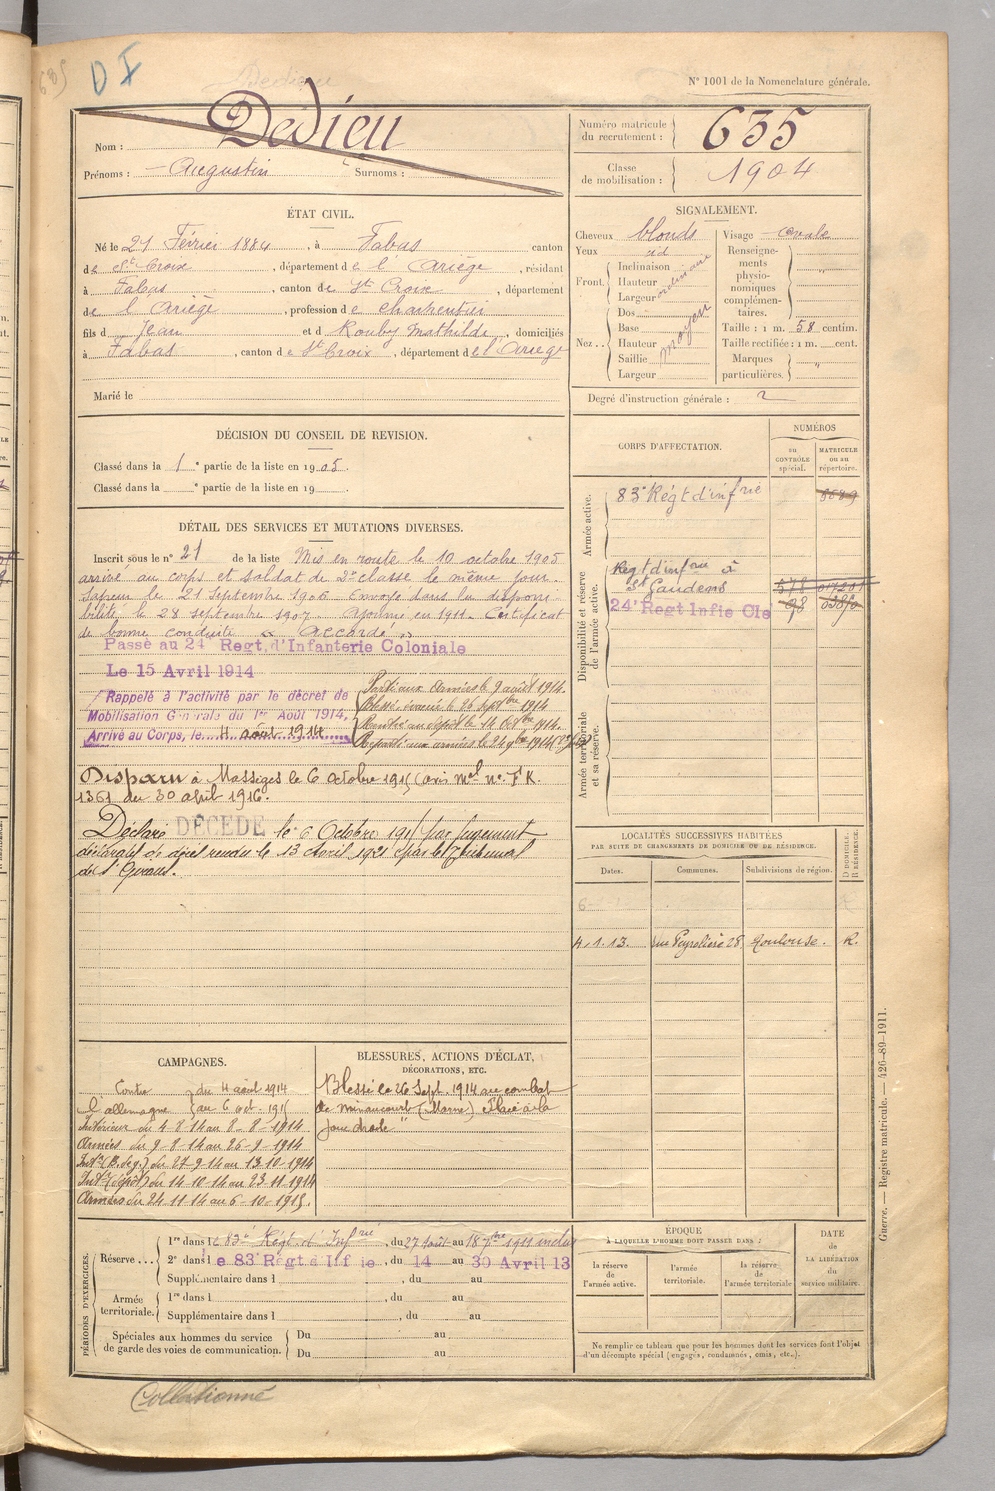 D I
Dedieu
N° 1001 de la Nomenclature générale.
Nom : Dedieu
Prénoms : Augustin Surnoms :
Numéro matricule du recrutement : 635
Classe de mobilisation : 1904
ÉTAT CIVIL.
Né le 21 Février 1884, à Fabas canton
de St Croix, département de l'Ariège, résidant
à Fabas, canton de St Croix, département
de l'Ariège, profession de charpentier
fils de Jean et de Rouby Mathilde, domiciliés
à Fabas, canton de St Croix, département de l'Ariège
Marié le
SIGNALEMENT.
Cheveux blonds Visage ovale
Yeux
Front. Inclinaison Hauteur Largeur ordinaire
Nez Dos Base Hauteur Saillie Largeur moyen
Renseignements physionomiques complémentaires. "
Taille : 1 m. 58 centim.
Taille rectifiée : 1 m. cent.
Marques particulières. "
Degré d'instruction générale : 2
DÉCISION DU CONSEIL DE REVISION.
Classé dans la 1e partie de la liste en 1905.
Classé dans la e partie de la liste en 19
DÉTAIL DES SERVICES ET MUTATIONS DIVERSES.
Inscrit sous le n° 21 de la liste Mis en route le 10 octobre 1905
arrivé au corps et soldat de 2e classe le même jour.
Sapeur le 21 Septembre 1906 Envoyé dans la disponi-
bilité le 28 septembre 1907. Ajourné en 1911. Certificat
de bonne conduite « Accordé »
Passé au 24e Regt. d'Infanterie Coloniale
Le 15 Avril 1914
Rappelé à l'activité par le décret de
Mobilisation Générale du 1er Août 1914,
Arrivé au Corps, le 4 août 1914
Parti aux Armées le 9 août 1914.
Blessé évacué le 26 septbre 1914
Rentré au dépôt le 14 Octbre 1914.
Reparti aux armées le 24 9bre 1914
Disparu à Massiges le 6 octobre 1915 (avis mel n° FK.
1361 du 30 avril 1916.
Déclaré DÉCÉDÉ le 6 Octobre 1915 par jugement
déclaratif de décès rendu le 13 avril 1921 par le Tribunal
de St Girons.
CORPS D'AFFECTATION.
NUMÉROS
au CONTRÔLE spécial.
MATRICULE ou au répertoire.
Armée active.
83e Régt d'infrie
Disponibilité et réserve de l'armée active.
Regt d'infrie à
St Gaudens 578
24e Regt Infie Cle
Armée territoriale et sa réserve.
LOCALITÉS SUCCESSIVES HABITÉES
PAR SUITE DE CHANGEMENTS DE DOMICILE OU DE RÉSIDENCE.
Dates. Communes. Subdivisions de région. D DOMICILE. R RÉSIDENCE.
4.1.13. rue Peyrolière 28, Toulouse. R.
CAMPAGNES.
Contre l'allemagne du 4 août 1914
au 6 oct. 1915
Intérieur du 4-8-14 au 8-8-1914
Armées du 9-8-14 au 26-9-1914
Intr (B. de g.) du 27-9-14 au 13-10-1914
Intr (dépôt) du 14-10-14 au 23-11-1914
Armées du 24-11-14 au 6-10-1915.
BLESSURES, ACTIONS D'ÉCLAT, DÉCORATIONS, ETC.
Blessé le 26 Sept. 1914 au combat
de minaucourt (Marne) Plaie à la
joue droite"
PÉRIODES D'EXERCICES.
Réserve...
1re dans le 83e Régt d'Infrie, du 27 août au 18 7bre 1911 inclus
2e dans le 83e Régt d'Infie, du 14 au 30 Avril 13
Supplémentaire dans l , du au
Armée territoriale.
1re dans l , du au
Supplémentaire dans l , du au
Spéciales aux hommes du service de garde des voies de communication.
Du au
Du au
ÉPOQUE
A LAQUELLE L'HOMME DOIT PASSER DANS :
la réserve de l'armée active.
l'armée territoriale.
la réserve de l'armée territoriale
DATE de LA LIBÉRATION du service militaire.
Ne remplir ce tableau que pour les hommes dont les services font l'objet
d'un décompte spécial (engagés, condamnés, omis, etc.).
Guerre. — Registre matricule. — 426-89-1911.
Collationné